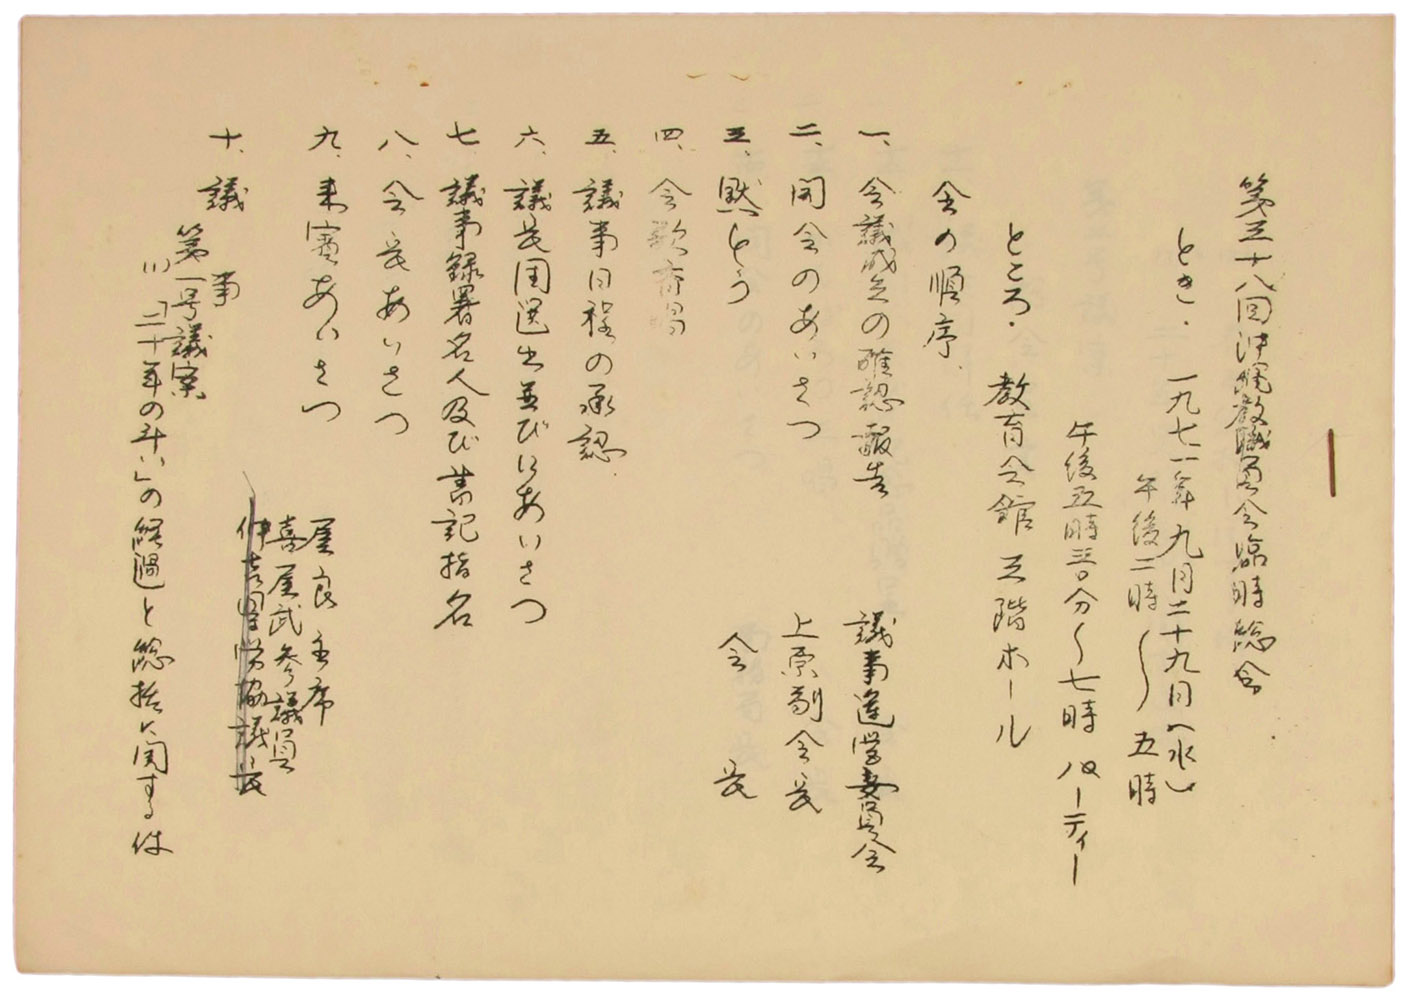 第三十八回沖縄教職員会臨時総会
とき. 一九七一年九月二十九日(水)
午後二時〜五時
午後五時三〇分〜七時 パーティー
ところ. 教育会館三階ホール
会の順序.
一、会議成立の確認報告 議事運営委員会
二、開会のあいさつ 上原副会長
三、黙とう 会長
四、会歌斉唱
五、議事日程の承認.
六、議長団選出並びにあいさつ
七、議事録署名人及び書記指名
八、会長あいさつ
九、来賓あいさつ 屋良主席
喜屋武参議員
仲吉県労協議長
十、議事
第一号議案
(1)「二十年の斗い」の経過と総括に関する件